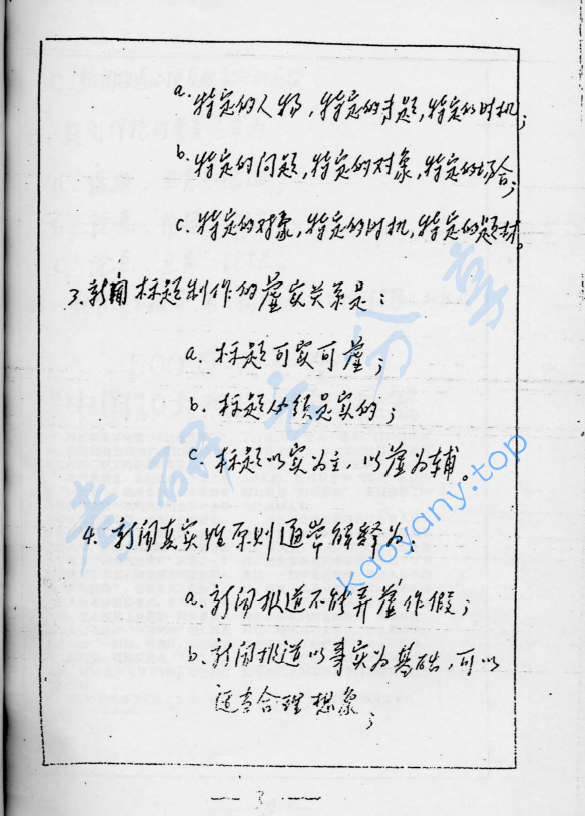 a. 特定的人物，特定的专题，特定的时机；
b. 特定的问题，特定的对象，特定的场合；
c. 特定的对象，特定的时机，特定的题材。
3. 新闻标题制作的虚实关系是：
a. 标题可实可虚；
b. 标题必须是实的；
c. 标题以实为主，以虚为辅。
4. 新闻真实性原则通常解释为：
a. 新闻报道不能弄虚作假；
b. 新闻报道以事实为基础，可以
适当合理想象；
— 3 —
考研云分享
kaoyany.top